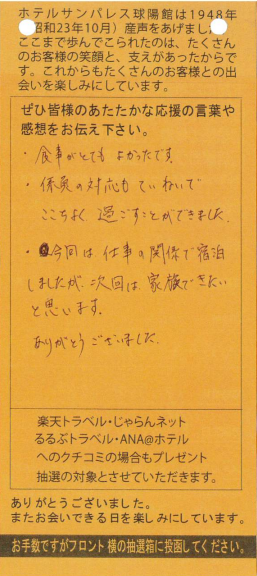 ホテルサンパレス球陽館は1948年
昭和23年10月）産声をあげました
ここまで歩んでこられたのは、たくさん
のお客様の笑顔と、支えがあったからで
す。これからもたくさんのお客様との出
会いを楽しみにしています。
ぜひ皆様のあたたかな応援の言葉や
感想をお伝え下さい。
・食事がとてもよかったです。
・係員の対応もていねいで
ここちよく過ごすことができました。
・今回は仕事の関係で宿泊
しましたが、次回は家族できたい
と思います。
ありがとうございました。
楽天トラベル・じゃらんネット
るるぶトラベル・ANA@ホテル
へのクチコミの場合もプレゼント
抽選の対象とさせていただきます。
ありがとうございました。
またお会いできる日を楽しみにしています。
お手数ですがフロント横の抽選箱に投函してください。